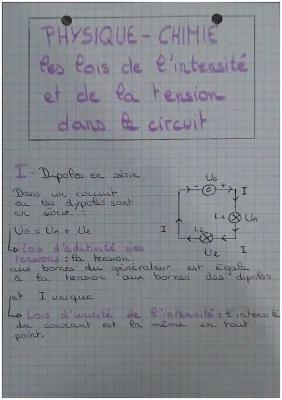 PHYSIQUE - CHIMIE
les lois de l'intensité
et de la tension
dans le circuit
I - Dipoles en série
Dans un circuit
ou les dypoles sont
en série :
U₀ = U₁ + U₂
Lois d'aditivité des
tensions : la tension
aux bornes du générateur est égale
à la tension aux bornes des dipoles.
et I unique
Lois d'unicité de l'intensité : l'intensité
du courant est la même en tout
point.
U₀
- G +
I
L₁
U₁
L₂
I
U₂